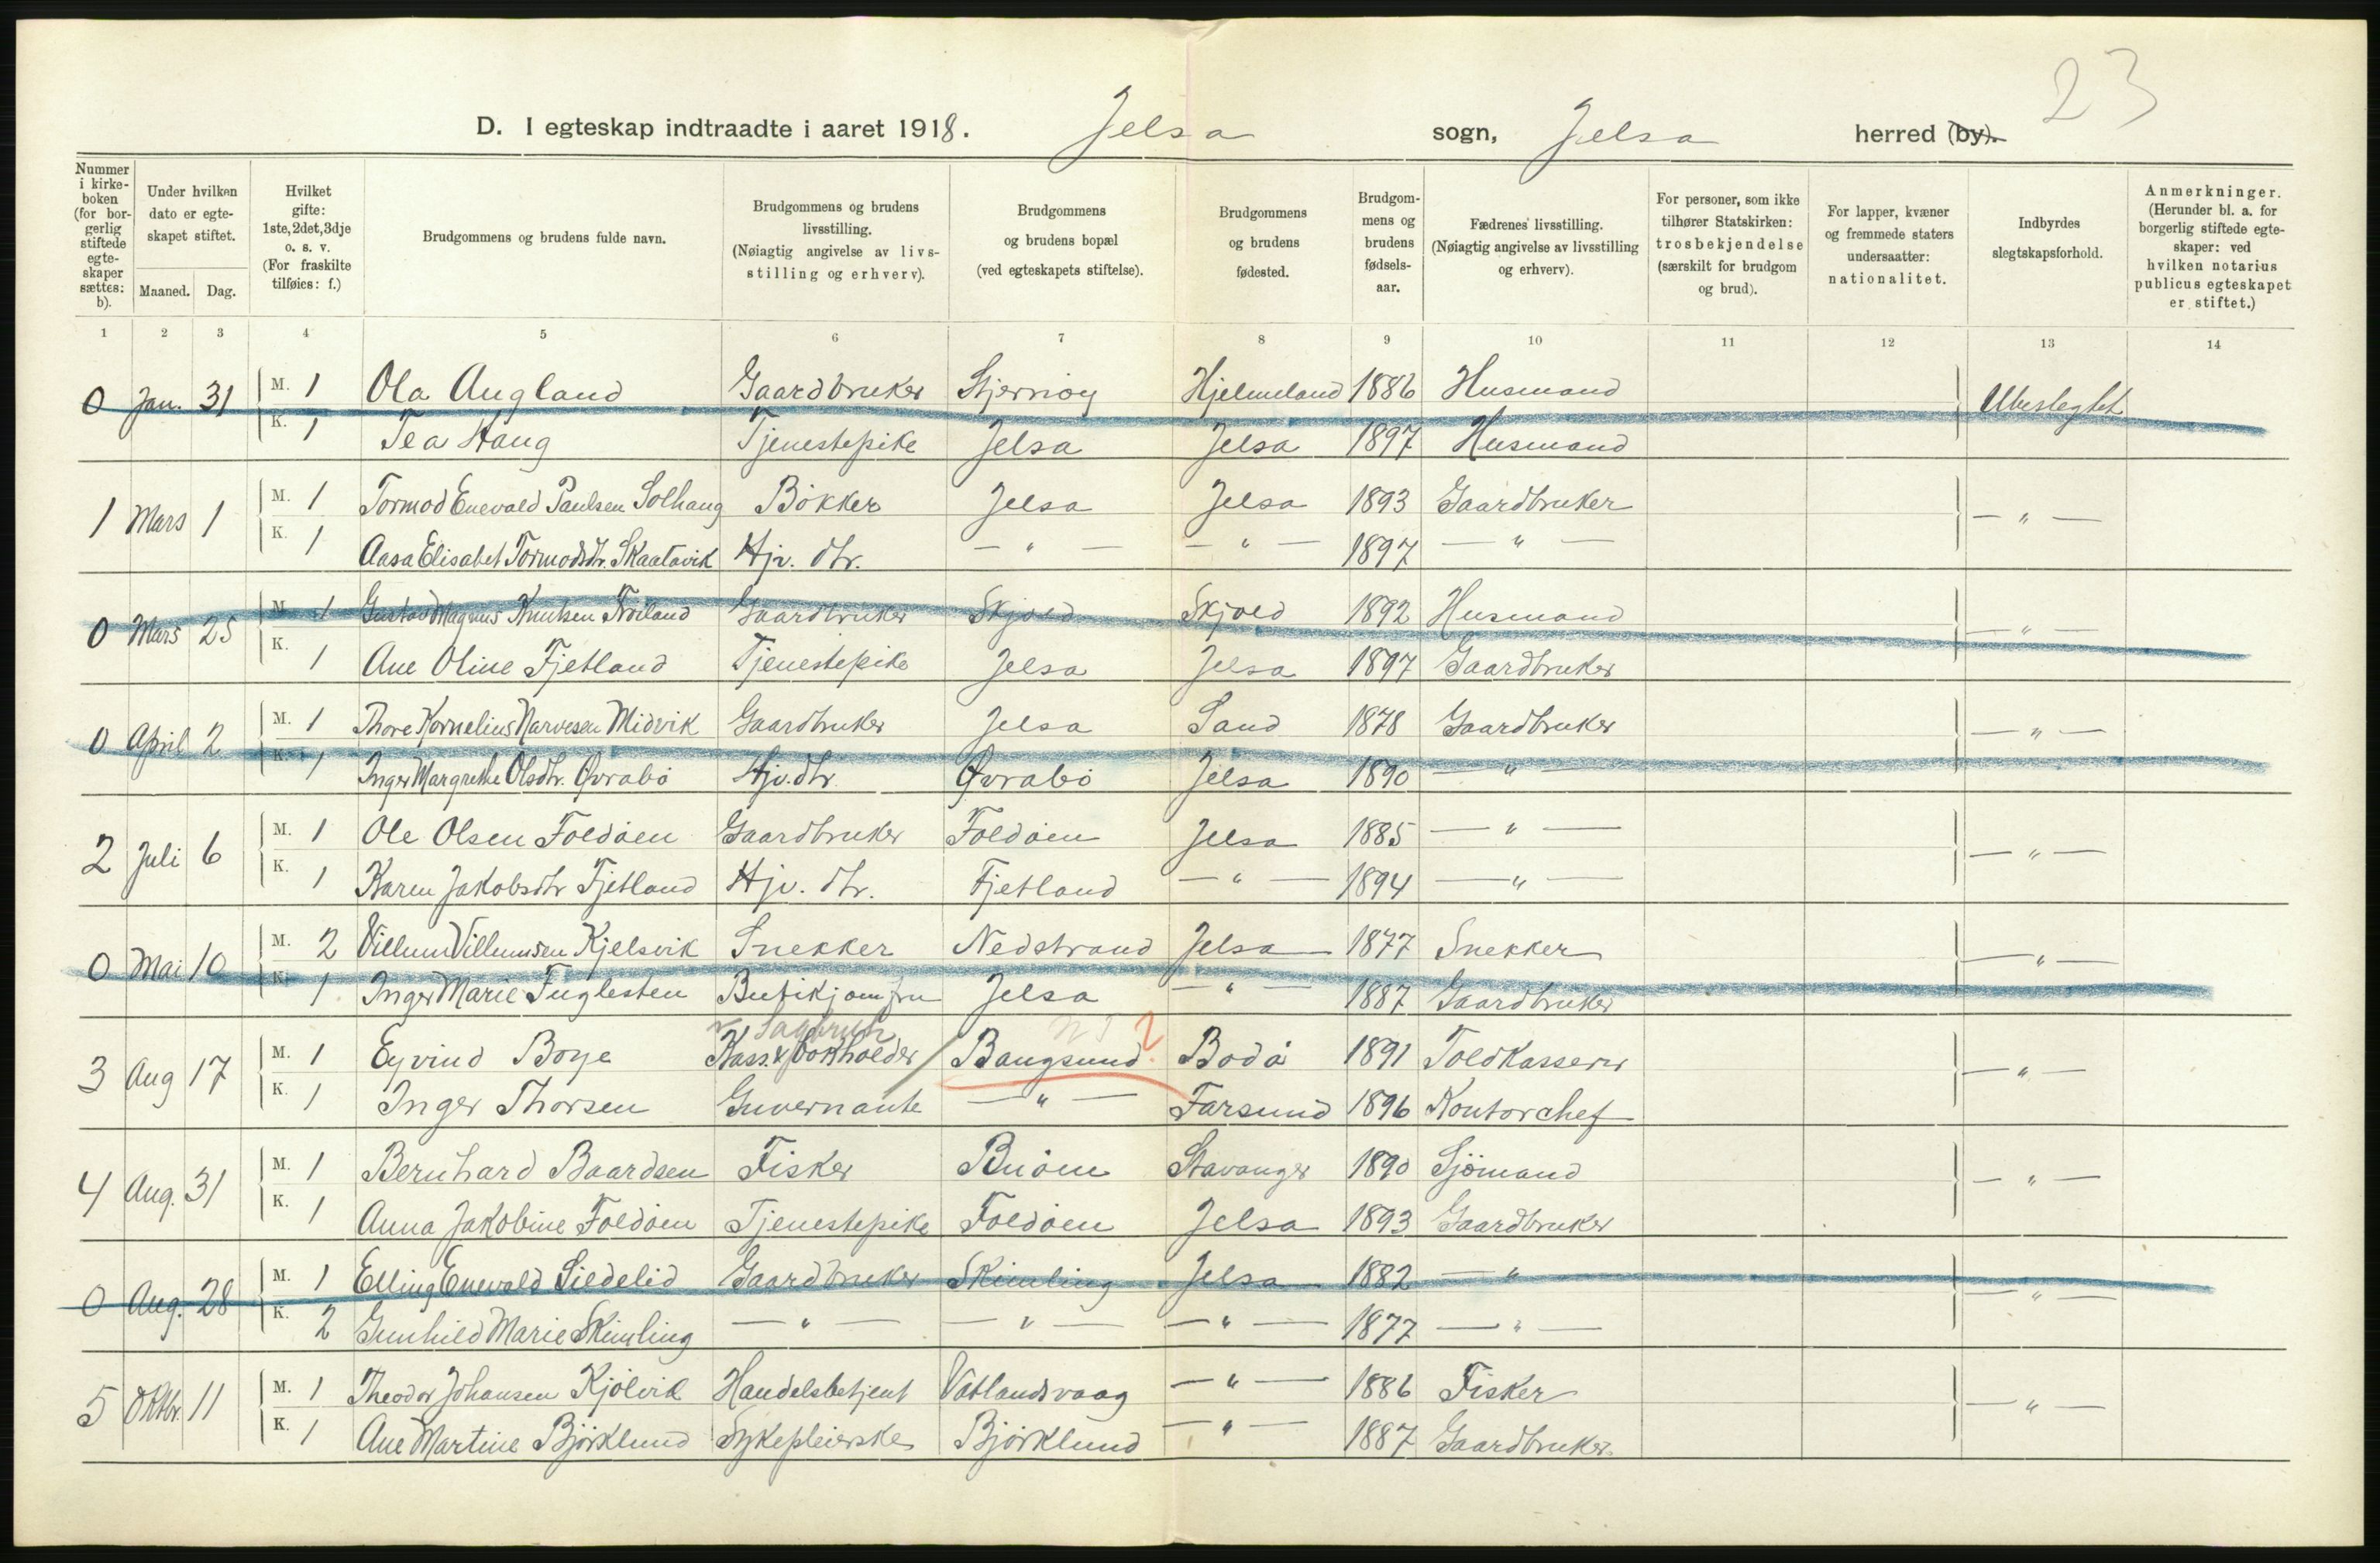 23
D. I egteskap indtraadte i aaret 1918. Jelsa sogn, Jelsa herred (by).
Nummer i kirkeboken (for borgerlig stiftede egteskaper sættes: b).
Under hvilken dato er egteskapet stiftet.
Maaned. Dag.
Hvilket gifte: 1ste, 2det, 3dje o. s. v. (For fraskilte tilføies: f.)
Brudgommens og brudens fulde navn.
Brudgommens og brudens livsstilling. (Nøiagtig angivelse av livsstilling og erhverv).
Brudgommens og brudens bopæl (ved egteskapets stiftelse).
Brudgommens og brudens fødested.
Brudgommens og brudens fødselsaar.
Fædrenes livsstilling. (Nøiagtig angivelse av livsstilling og erhverv).
For personer, som ikke tilhører Statskirken: trosbekjendelse (særskilt for brudgom og brud).
For lapper, kvæner og fremmede staters undersaatter: nationalitet.
Indbyrdes slegtskapsforhold.
Anmerkninger. (Herunder bl. a. for borgerlig stiftede egteskaper: ved hvilken notarius publicus egteskapet er stiftet.)
1 2 3 4 5 6 7 8 9 10 11 12 13 14
0 Jan. 31 M. 1 Ola Augland Gaardbruker Stjernöy Hjelmeland 1886 Husmand Ubeslegtet
K. 1 Tea Haug Tjenestepike Jelsa Jelsa 1897 Husmand
1 Mars 1 M. 1 Tormod Enevald Paulsen Solhaug Bökker Jelsa Jelsa 1893 Gaardbruker — " —
K. 1 Aasa Elisabet Tormodsdtr. Skaatavik Hjv. dtr. — " — — " — 1897 — " —
0 Mars 25 M. 1 Gustav Magnus Knutsen Fröiland Gaardbruker Skjold Skjold 1892 Husmand — " —
K. 1 Ane Oline Fjetland Tjenestepike Jelsa Jelsa 1897 Gaardbruker
0 April 2 M. 1 Thore Kornelius Narvesen Midvik Gaardbruker Jelsa Sand 1878 Gaardbruker — " —
K. 1 Inger Margrethe Olsdtr. Qvrabö Hjv. dtr. Qvrabö Jelsa 1890 — " —
2 Juli 6 M. 1 Ole Olsen Foldöen Gaardbruker Foldöen Jelsa 1885 — " — — " —
K. 1 Karen Jakobsdtr Fjetland Hjv. dtr. Fjetland — " — 1894 — " —
0 Mai 10 M. 2 Villum Villumsen Kjelsvik Snekker Nedstrand Jelsa 1877 Snekker — " —
K. 1 Inger Marie Fuglesten Butikjomfru Jelsa — " — 1887 Gaardbruker
3 Aug 17 M. 1 Eyvind Boye Kass. & bokholder Bangsund ? Bodö 1891 Toldkasserer — " —
K. 1 Inger Thorsen Guvernante — " — Farsund 1896 Kontorchef
4 Aug. 31 M. 1 Bernhard Baardsen Fisker Buöen Stavanger 1890 Sjömand — " —
K. 1 Anna Jakobine Foldöen Tjenestepike Foldöen Jelsa 1893 Gaardbruker
0 Aug. 28 M. 1 Elling Enevald Lidelid Gaardbruker Skimling Jelsa 1882 — " — — " —
K. 2 Gunhild Marie Skimling — " — — " — — " — 1877 — " —
5 Oktbr. 11 M. 1 Theodor Johansen Kjölvik Handelsbetjent Vatlandsvaag — " — 1886 Fisker — " —
K. 1 Ane Martine Björklund Sykepleierske Björklund — " — 1887 Gaardbruker